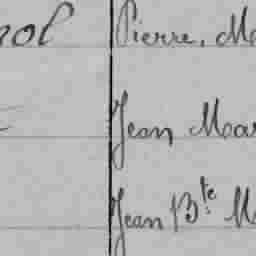 Pierre, Ma
Jean Mar
Jean Bte M